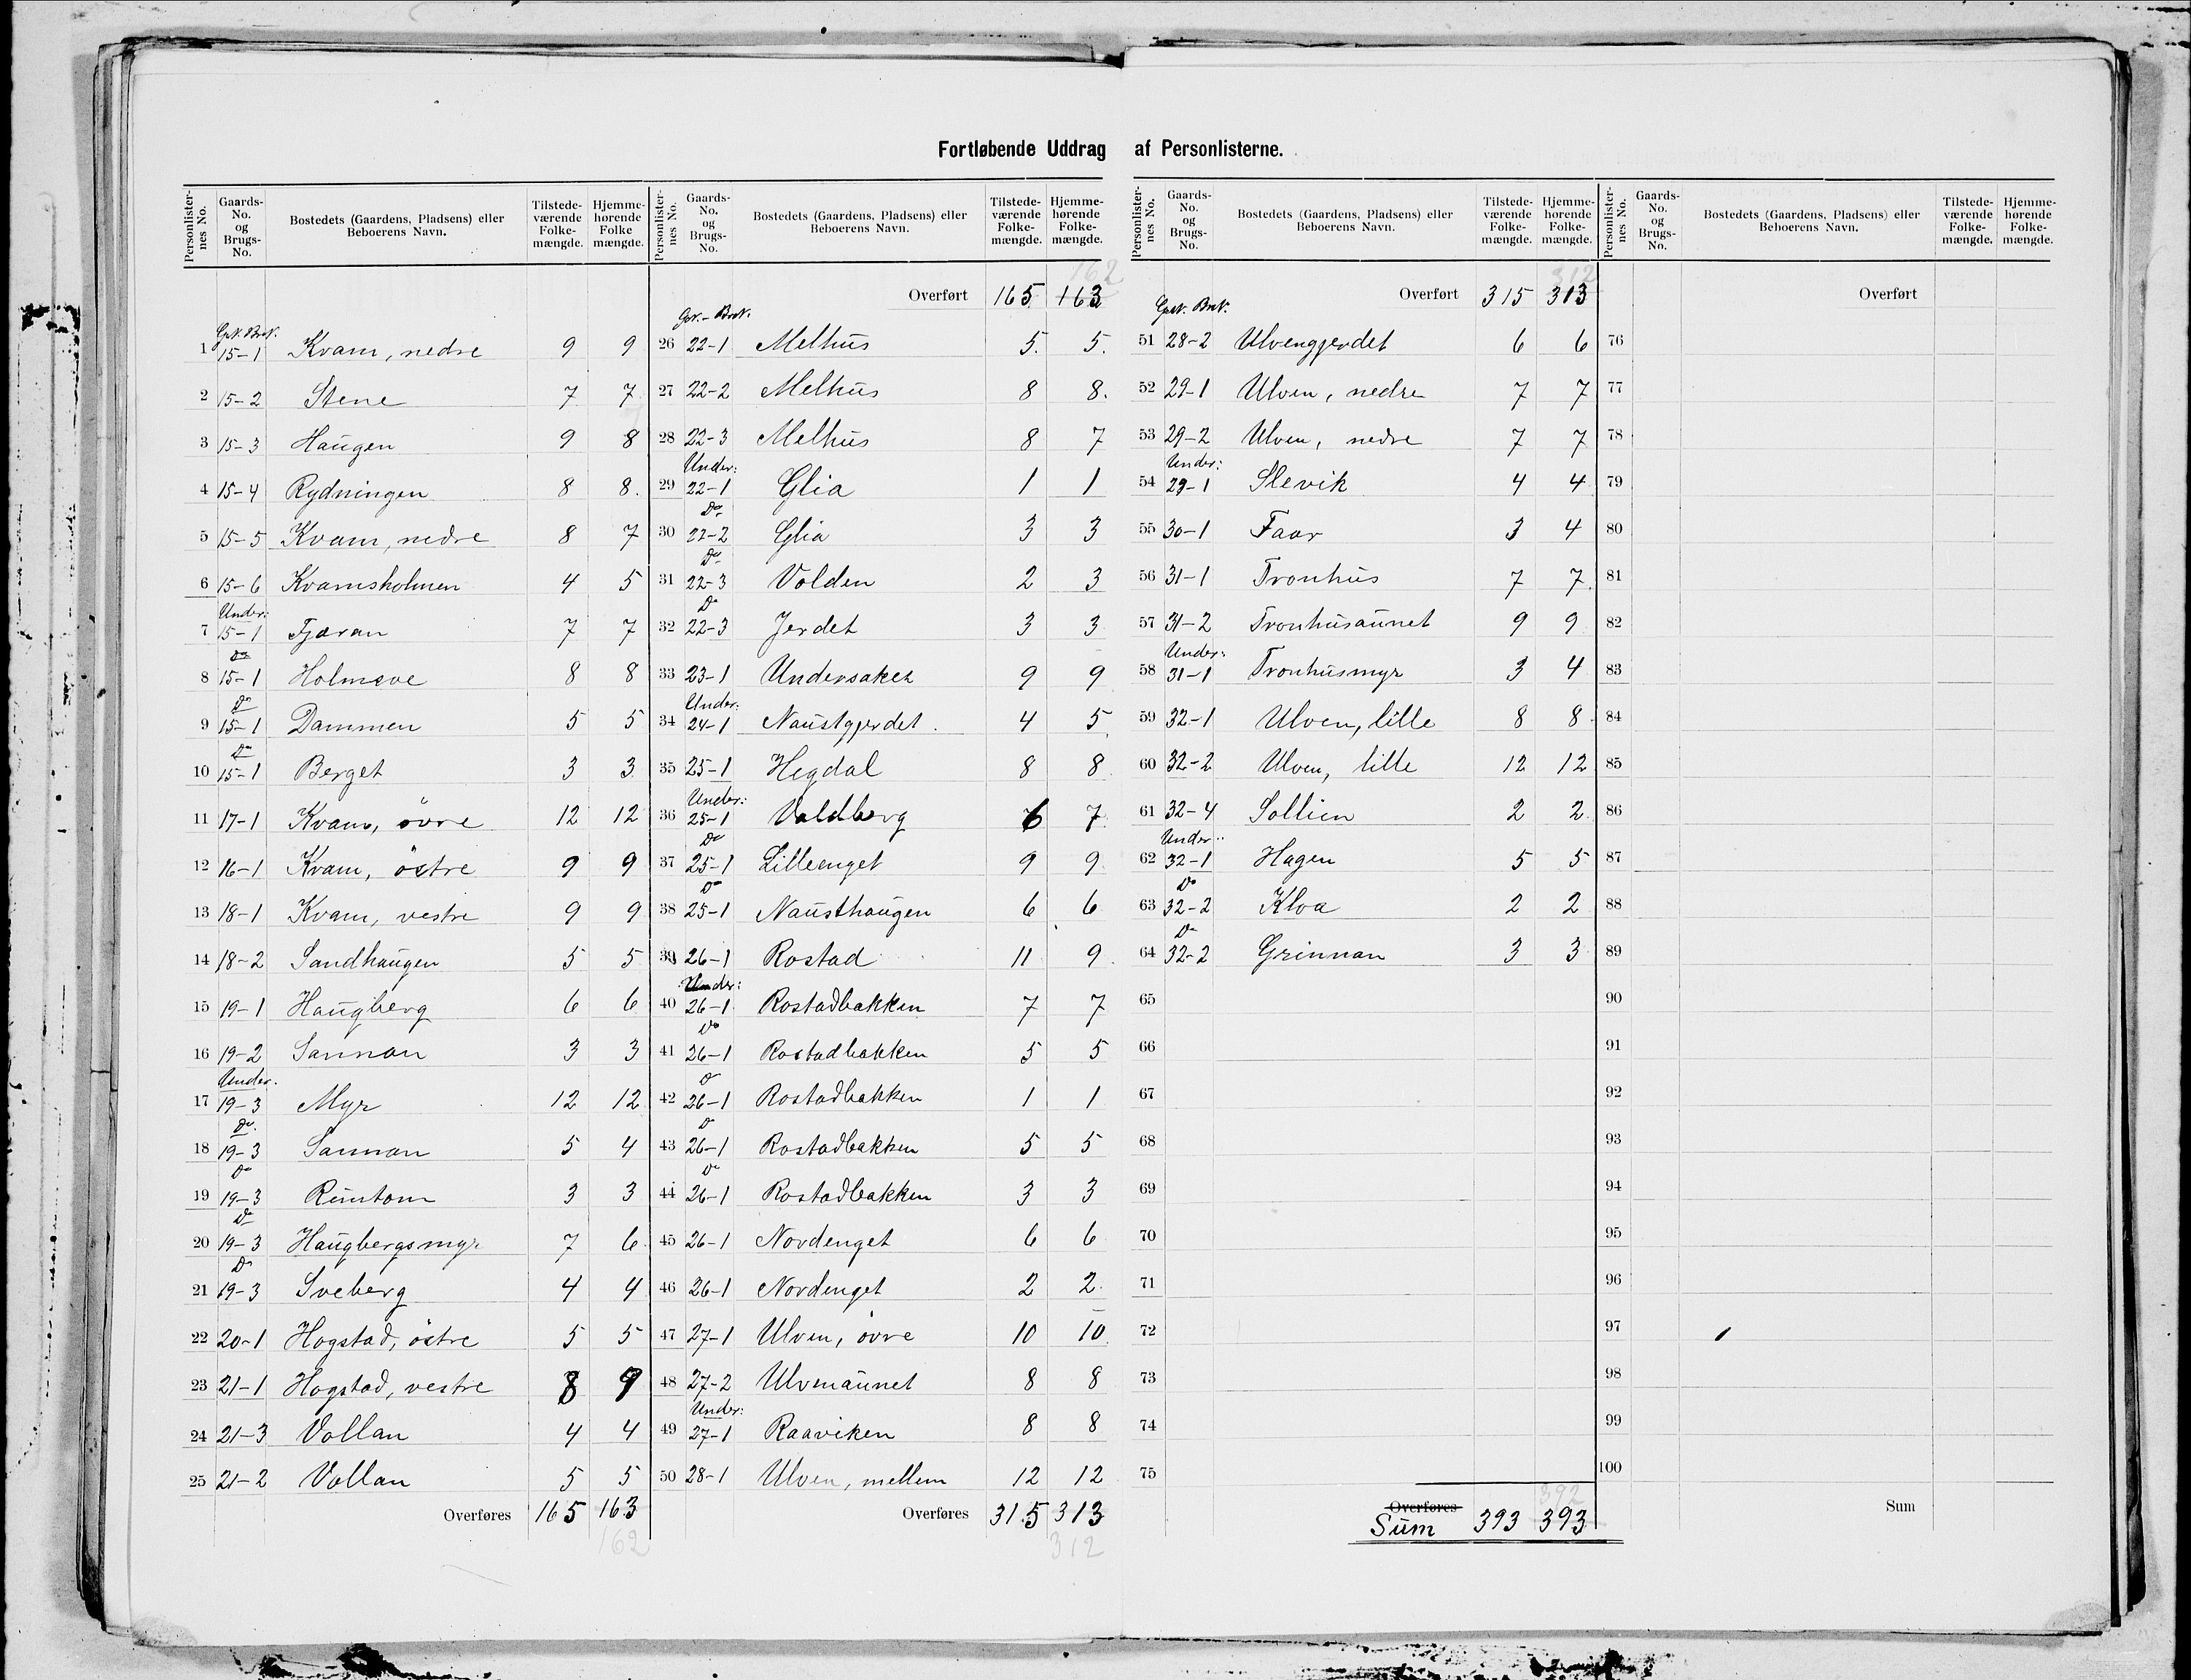 Fortløbende Uddrag af Personlisterne.
Personlisternes No. Gaards-No. og Brugs-No. Bostedets (Gaardens, Pladsens) eller Beboerens Navn. Tilstedeværende Folkemængde. Hjemmehørende Folkemængde.
Gr.N. Br.N.
1 15-1 Kvam, nedre 9 9
2 15-2 Stene 7 7
3 15-3 Haugen 9 8
4 15-4 Rydningen 8 8.
5 15-5 Kvam, nedre 8 7
6 15-6 Kvamsholmen 4 5
Under:
7 15-1 Tjæran 7 7
Do
8 15-1 Holmeve 8 8
Do
9 15-1 Dammen 5 5
Do
10 15-1 Berget 3 3
11 17-1 Kvam, övre 12 12
12 16-1 Kvam, östre 9 9
13 18-1 Kvam, vestre 9 9
14 18-2 Sandhaugen 5 5
15 19-1 Haugberg 6 6
16 19-2 Sannan 3 3
Under.
17 19-3 Myr 12 12
Do.
18 19-3 Sannan 5 4
Do
19 19-3 Rumtom 3 3
Do
20 19-3 Haugbergsmyr 7 6
Do
21 19-3 Sveberg 4 4
22 20-1 Hogstad, östre 5 5
23 21-1 Hogstad, vestre 8 9
24 21-3 Vollan 4 4
25 21-2 Vollan 5 5
Overføres 165 163
162
Personlisternes No. Gaards-No. og Brugs-No. Bostedets (Gaardens, Pladsens) eller Beboerens Navn. Tilstedeværende Folkemængde. Hjemmehørende Folkemængde.
162
Overført 165 163
Gr.-Br.N.
26 22-1 Melhus 5. 5.
27 22-2 Melhus 8 8.
28 22-3 Melhus 8 7
Under:
29 22-1 Glia 1 1
Do
30 22-2 Glia 3 3
Do
31 22-3 Volden 2 3
Do
32 22-3 Jerdet 3 3
33 23-1 Undersaker 9 9
Under:
34 24-1 Naustgjerdet. 4 5
35 25-1 Hegdal 8 8
Under:
36 25-1 Valdberg 6 7
Do
37 25-1 Lilleenget 9 9
Do
38 25-1 Nausthaugen 6 6
39 26-1 Rostad 11 9
Under:
40 26-1 Rostadbakken 7 7
Do
41 26-1 Rostadbakken 5 5
Do
42 26-1 Rostadbakken 1 1
Do
43 26-1 Rostadbakken 5 5
Do
44 26-1 Rostadbakken 3 3
45 26-1 Nordenget 6 6
46 26-1 Nordenget 2 2.
47 27-1 Ulven, övre 10 10
48 27-2 Ulvenaunet 8 8
Under:
49 27-1 Raaviken 8 8
50 28-1 Ulven, mellem 12 12
Overføres 315 313
312
Personlisternes No. Gaards-No. og Brugs-No. Bostedets (Gaardens, Pladsens) eller Beboerens Navn. Tilstedeværende Folkemængde. Hjemmehørende Folkemængde.
312
Overført 315 313
51 28-2 Ulvengjerdet 6 6
52 29-1 Ulven, nedre 7 7
53 29-2 Ulven, nedre 7 7
Under:
54 29-1 Slevik 4 4
55 30-1 Faar 3 4
56 31-1 Tronhus 7 7
57 31-2 Tronhusaunet 9 9
Under:
58 31-1 Tronhusmyr 3 4
59 32-1 Ulven, lille 8 8
60 32-2 Ulven, lille 12 12
61 32-4 Sollien 2 2
Under:
62 32-1 Hagen 5 5
Do
63 32-2 Kloa 2 2
Do
64 32-2 Grinnan 3 3
65
66
67
68
69
70
71
72
73
74
75
392
Overføres
Sum 393 393
Personlisternes No. Gaards-No. og Brugs-No. Bostedets (Gaardens, Pladsens) eller Beboerens Navn. Tilstedeværende Folkemængde. Hjemmehørende Folkemængde.
Overført
76
77
78
79
80
81
82
83
84
85
86
87
88
89
90
91
92
93
94
95
96
97
98
99
100
Sum